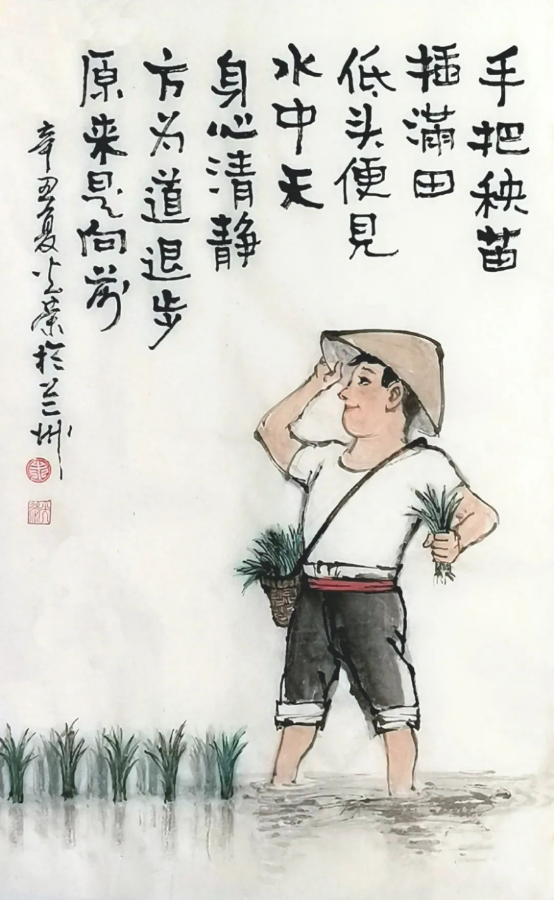 手把秧苗
插满田
低头便見
水中天
身心清静
方为道退步
原来是向前
辛丑夏光荣於兰州